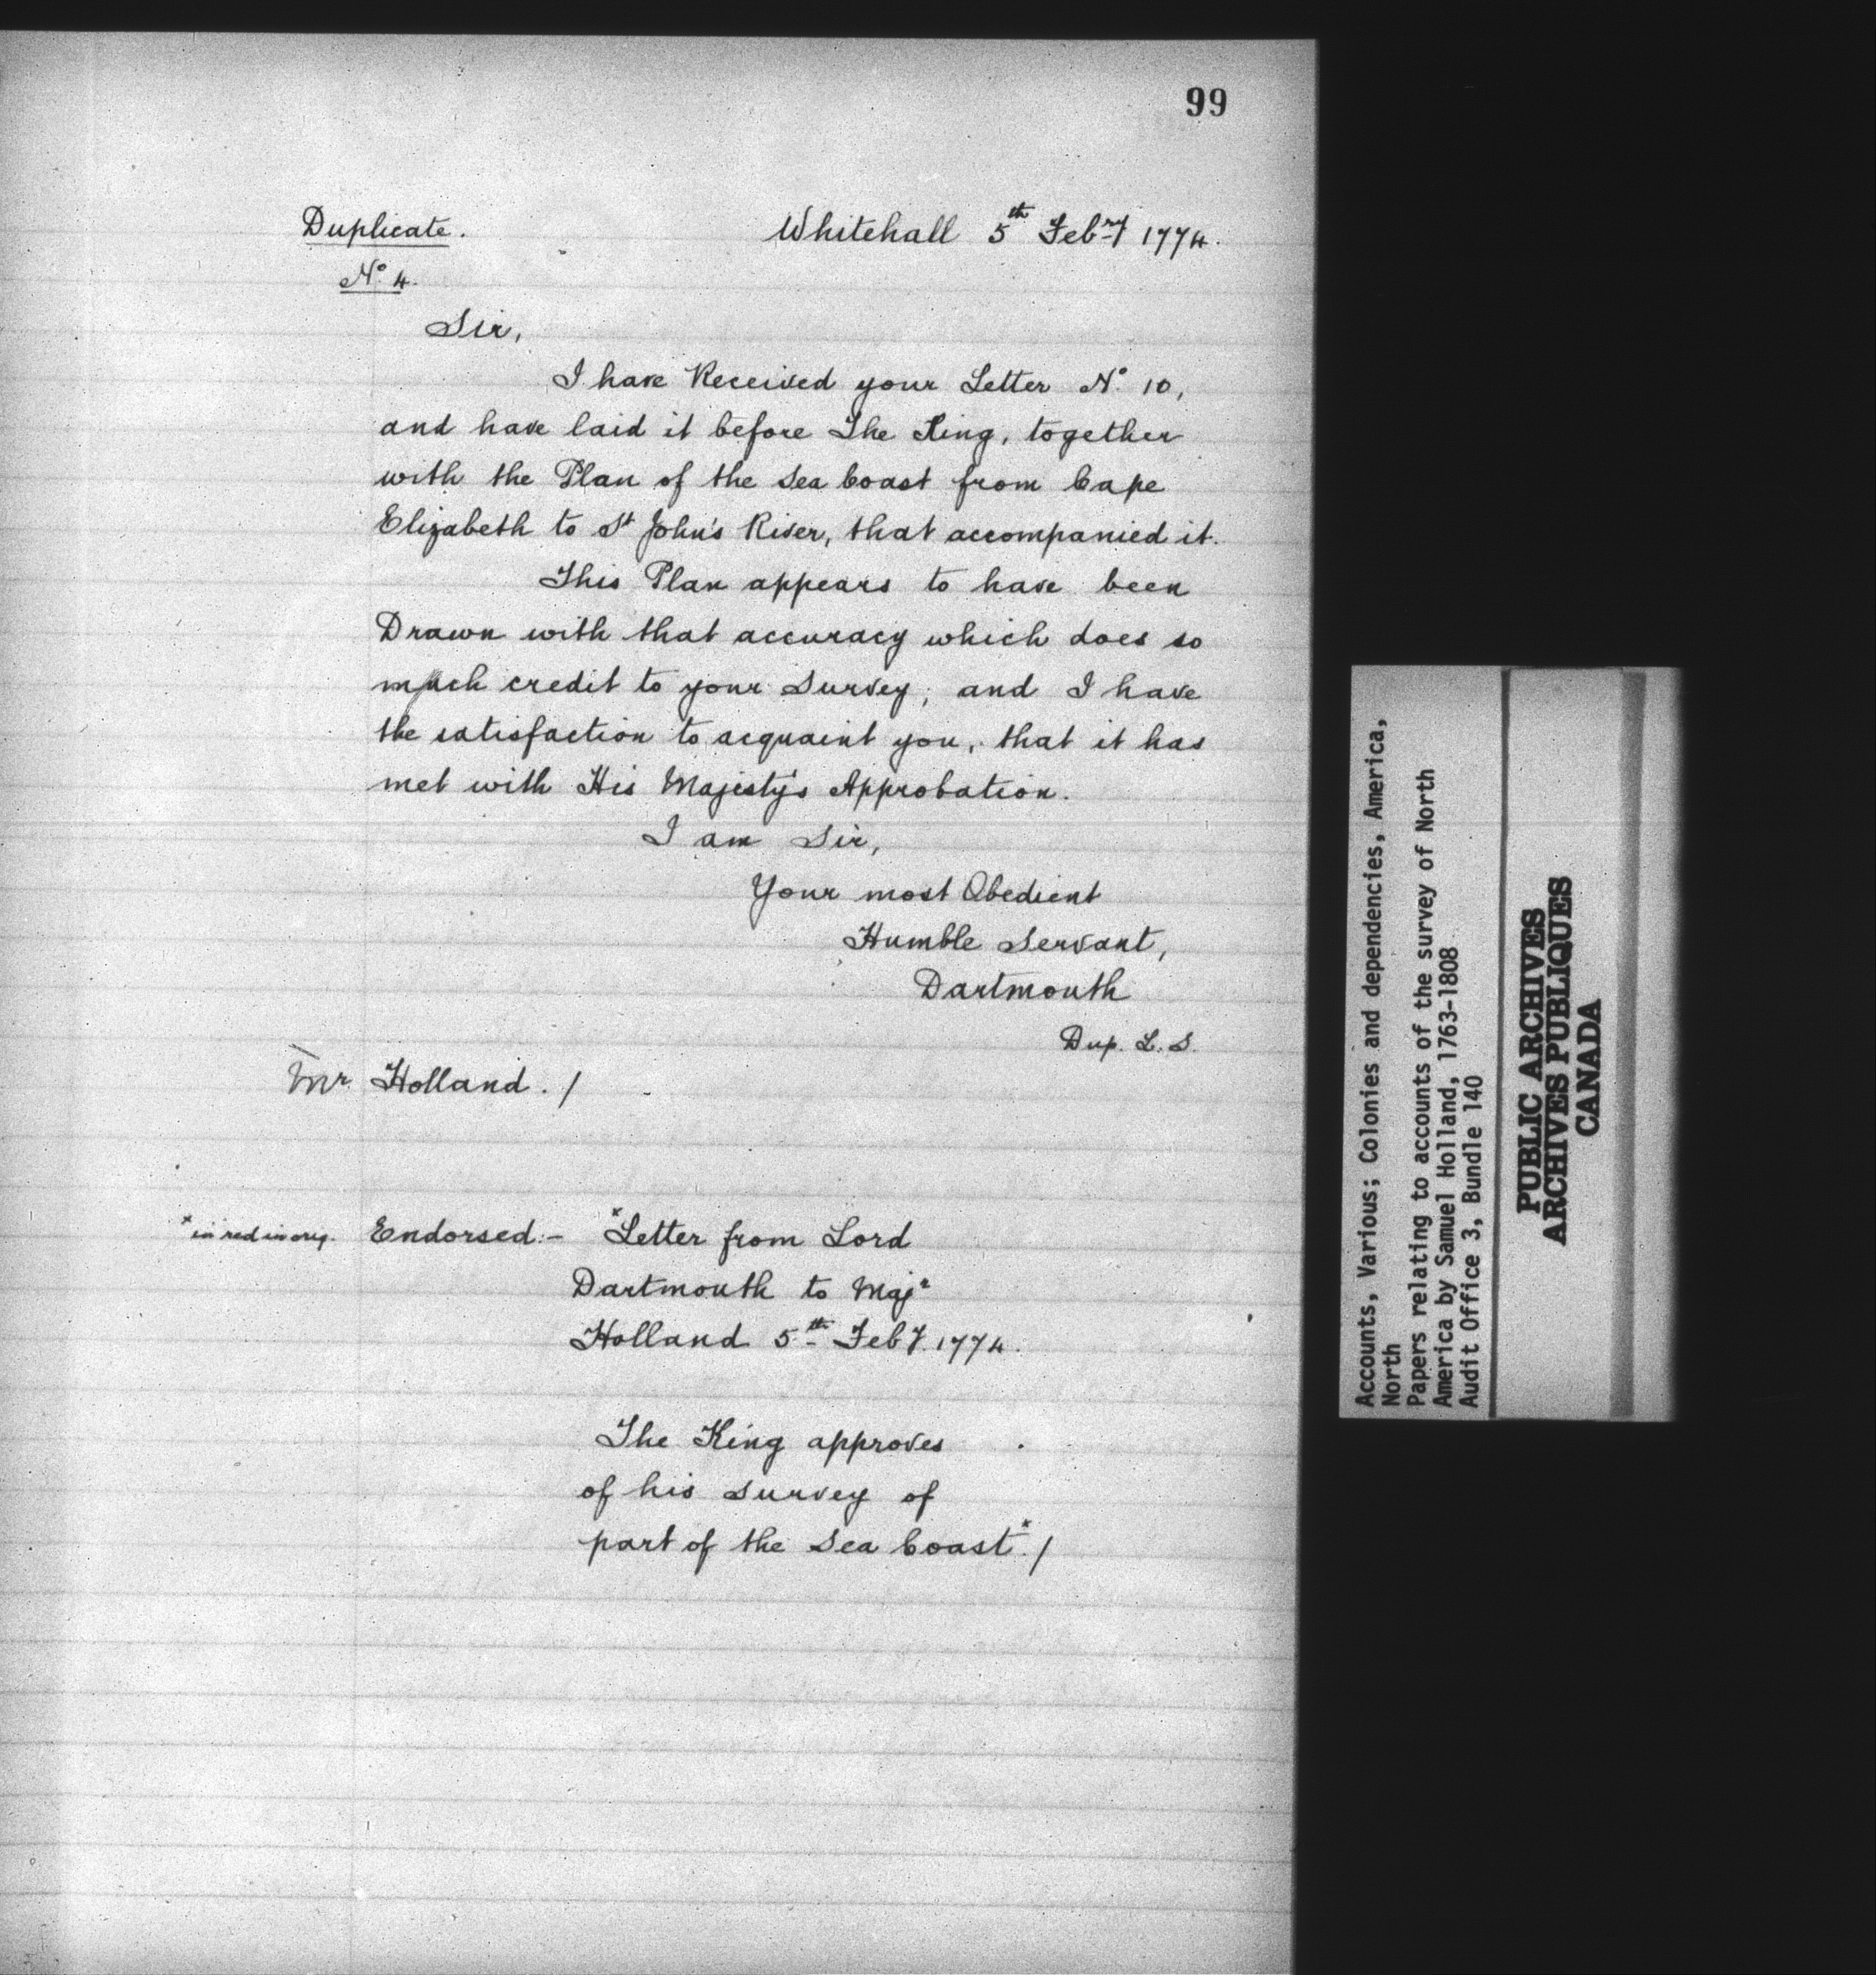 99
Duplicate. Whitehall 5th Febry 1774.
No 4.
Sir,
I have Received your Letter No 10,
and have laid it before The King, together
with the Plan of the Sea Coast from Cape
Elizabeth to St John's River, that accompanied it.
This Plan appears to have been
Drawn with that accuracy which does so
much credit to your Survey; and I have
the satisfaction to acquaint you, that it has
met with His Majesty's Approbation.
I am Sir,
Your most Obedient
Humble Servant,
Dartmouth
Dup. L. S.
Mr Holland. /
*in red in orig. Endorsed:- *Letter from Lord
Dartmouth to Majr
Holland 5th Feby. 1774.
The King approves
of his Survey of
part of the Sea Coast*. /
Accounts, Various; Colonies and dependencies, America,
North
Papers relating to accounts of the survey of North
America by Samuel Holland, 1763-1808
Audit Office 3, Bundle 140
PUBLIC ARCHIVES
ARCHIVES PUBLIQUES
CANADA